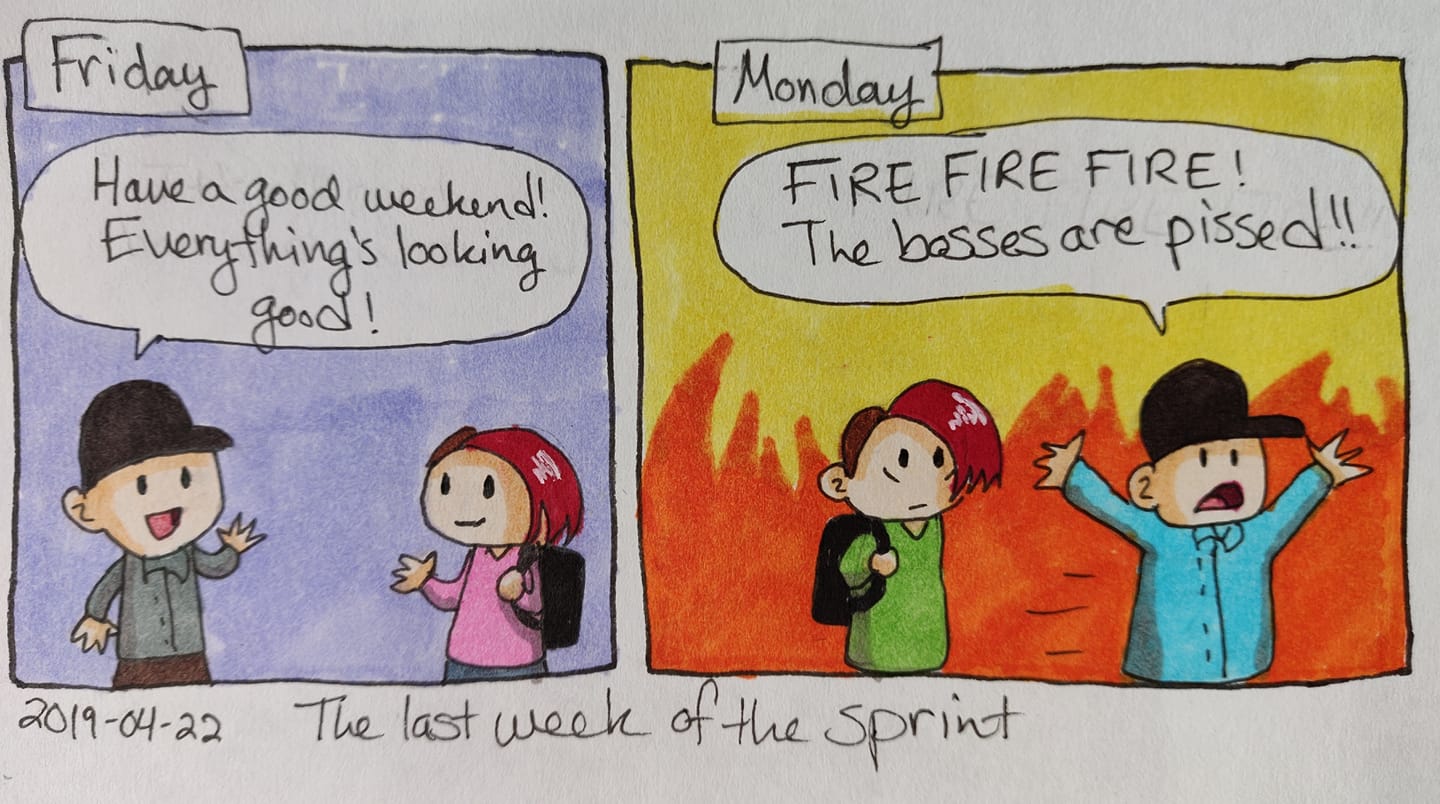 Friday
Have a good weekend!
Everything's looking
good!
Monday
FIRE FIRE FIRE!
The bosses are pissed!!
2019-04-22 The last week of the sprint